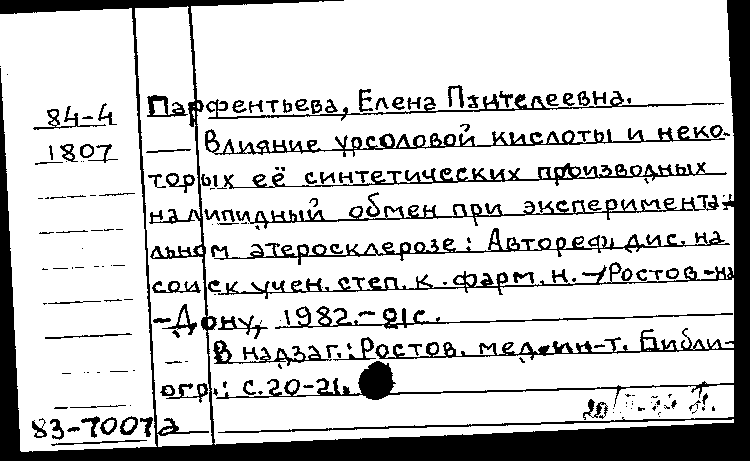 84-4
1807
Парфентьева, Елена Пантелеевна.
Влияние урсоловой кислоты и неко-
торых её синтетических производных
на липидный обмен при эксперимента-
льном атеросклерозе: Автореф. дис. на
соиск. учен. степ. к. фарм. н. - Ростов-на
-Дону, 1982. - 21с.
В надзаг.: Ростов. мед. ин-т. Библи-
огр.: с.20-21.
83-7007а